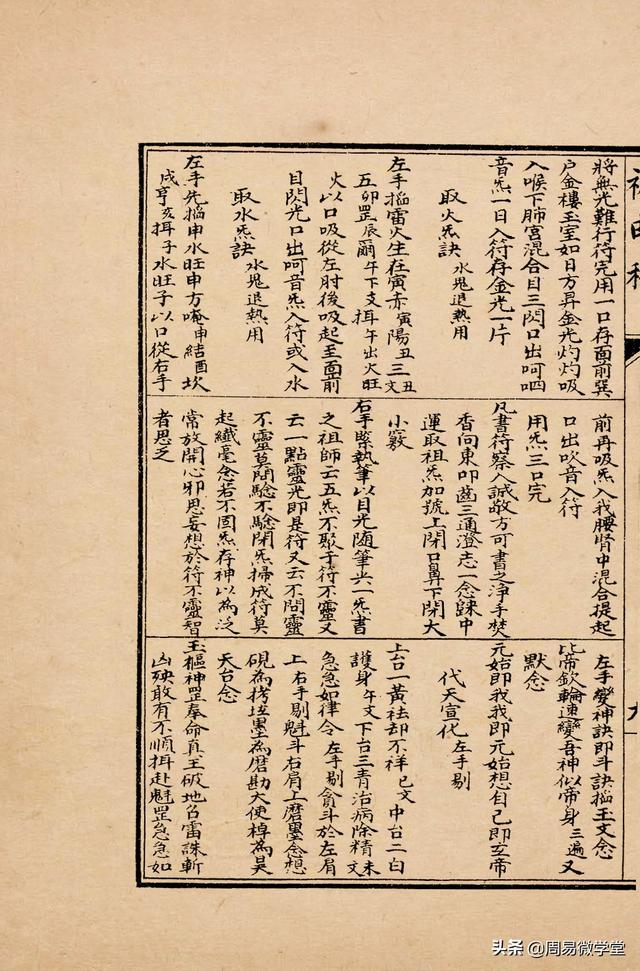 將無光難行符完用一口存面前巽
户金樓玉室如日方昇金光灼灼吸
入喉下肺宮混合目三閃口出呵呬
音炁一日入符存金光一片
取火炁訣 水鬼退熱用
左手掐雷火生在寅赤寅陽丑三丑文
五卯罡辰爾午下支揖午出火旺
火以口吸從左肘後吸起至面前
目閃光口出呵音炁入符或入水
取水炁訣 水鬼退熱用
左手先掐申水旺申方唵申結酉坎
戌亨亥揖子水旺子以口從右手
前再吸炁入我腰腎中混合提起
口出吹音入符
用炁三口完
凡書符察人誠敬方可書之淨手焚
香向東叩齒三通澄志一念歸中
運取祖炁加號上閉口鼻下閉大
小竅
右手緊執筆以目光随筆共一炁書
之祖師云五炁不聚于符不靈又
云一點靈光即是符又云不問靈
不靈莫問驗不驗閉炁掃成符莫
起纖毫念若不固炁存神以為泛
常放開心邪思妄想於符不靈智
者思之
左手變神訣即斗訣掐玉文念
比帝欽輪速變吾神似帝身 三遍又
默念
元始即我我即元始想自己即玄帝
代天宣化 左手剔
上台一黃祛却不祥 巳文 中台二白
護身 午文 下台三青治病除精 未文
急急如律令 左手剔 貪斗於左肩
上右手剔魁斗右肩上磨墨念想
硯為拷墨為磨勘大使棹為昊
天台念
玉樞神罡奉命真王破地召雷誅斬
凶殃敢有不順揖赴魁罡急急如
九
头条 @周易微学堂